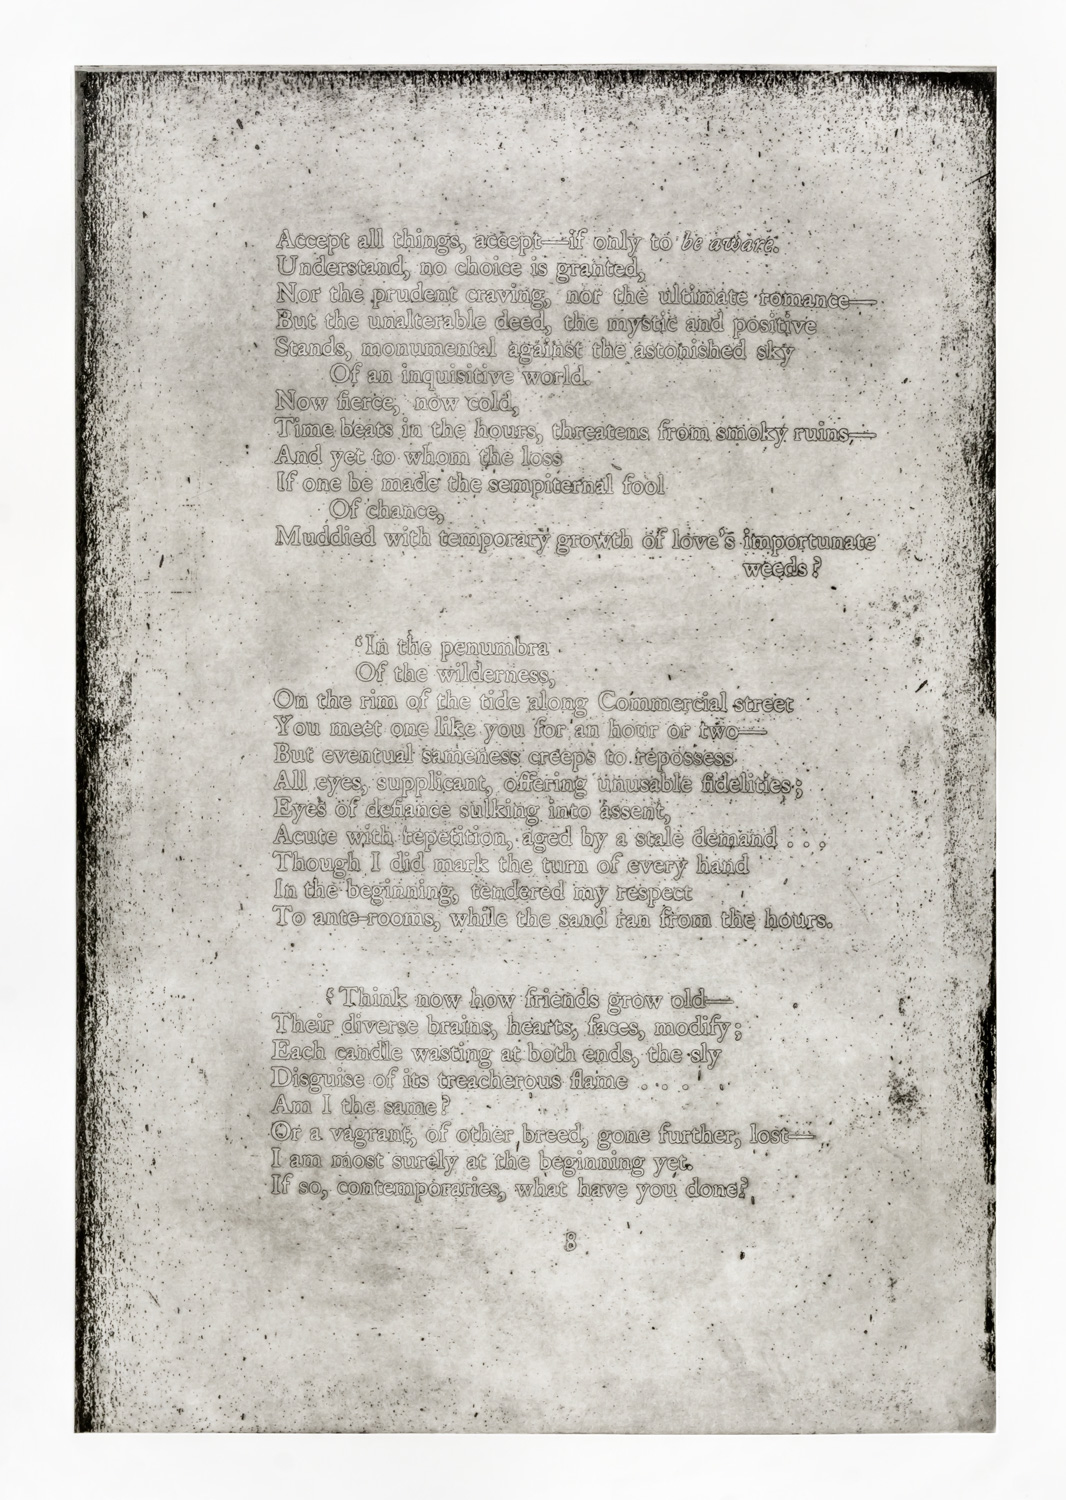 Accept all things, accept—if only to be aware.
Understand, no choice is granted,
Nor the prudent craving, nor the ultimate romance—
But the unalterable deed, the mystic and positive
Stands, monumental against the astonished sky
Of an inquisitive world.
Now fierce, now cold,
Time beats in the hours, threatens from smoky ruins,—
And yet to whom the loss
If one be made the sempiternal fool
Of chance,
Muddied with temporary growth of love's importunate
weeds?
'In the penumbra
Of the wilderness,
On the rim of the tide along Commercial street
You meet one like you for an hour or two—
But eventual sameness creeps to repossess
All eyes, supplicant, offering unusable fidelities;
Eyes of defiance sulking into assent,
Acute with repetition, aged by a stale demand . . .
Though I did mark the turn of every hand
In the beginning, tendered my respect
To ante-rooms, while the sand ran from the hours.
'Think now how friends grow old—
Their diverse brains, hearts, faces, modify;
Each candle wasting at both ends, the sly
Disguise of its treacherous flame . . .
Am I the same?
Or a vagrant, of other breed, gone further, lost—
I am most surely at the beginning yet.
If so, contemporaries, what have you done?
8